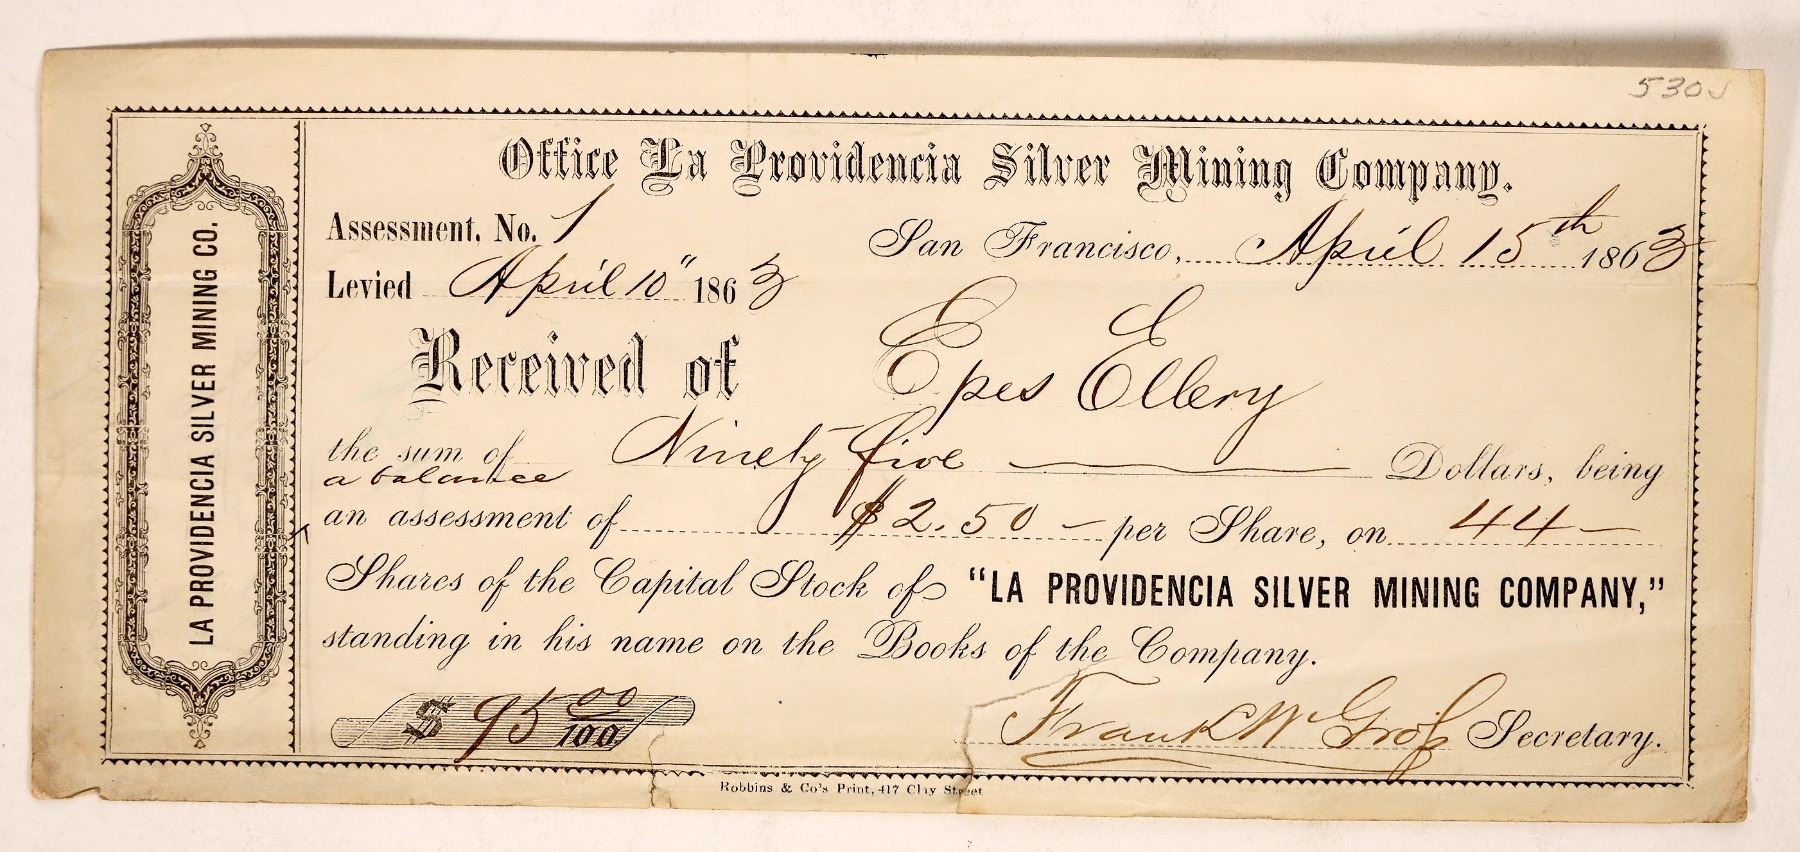 530J
Office La Providencia Silver Mining Company.
Assessment, No. 1
San Francisco, April 15th 1863
Levied April 10" 1863
Received of Epes Ellery
the sum of Ninety five Dollars, being
a balance
an assessment of $2.50 – per Share, on 44 –
Shares of the Capital Stock of "LA PROVIDENCIA SILVER MINING COMPANY,"
standing in his name on the Books of the Company.
$ 95 00/100
Frank W Groſs Secretary.
Robbins & Co's Print, 417 Clay Street
LA PROVIDENCIA SILVER MINING CO.